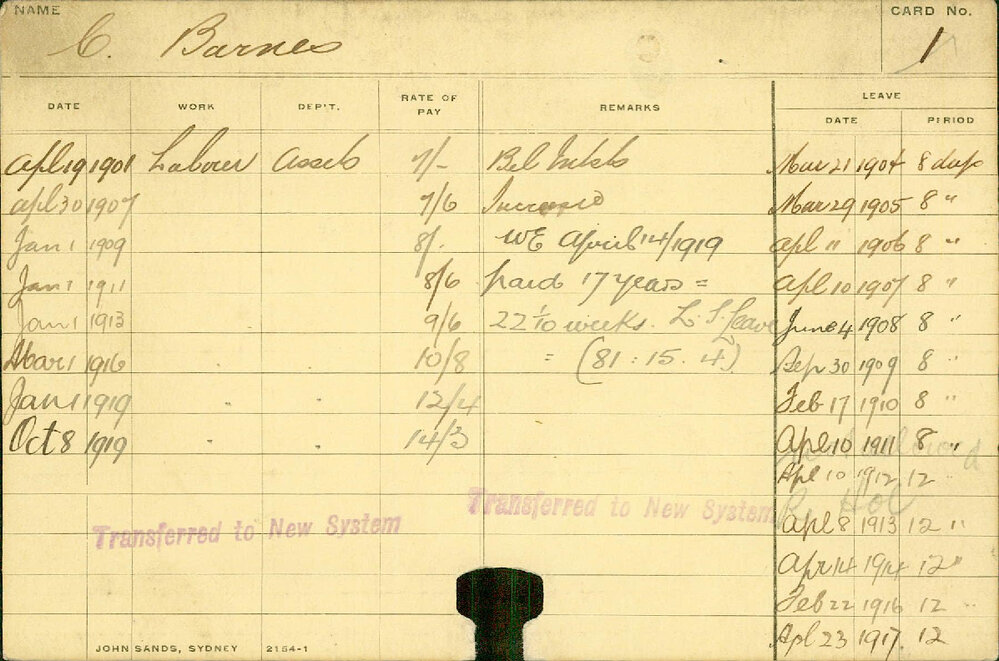 NAME
CARD No.
C. Barnes
1
DATE WORK DEP'T. RATE OF PAY REMARKS LEAVE
DATE PERIOD
Apl 19 1901 Labourer Assets 7/- Mar 21 1904 8 days
Apl 30 1907 7/6 Increase Mar 29 1905 8 "
Jan 1 1909 8/- WE April 14/1919 Apl 11 1906 8 "
Jan 1 1911 8/6 paid 17 years = Apl 10 1907 8 "
Jan 1 1913 9/6 22 1/10 weeks. L. S. Leave June 4 1908 8 "
Mar 1 1916 10/8 = (81. 15. 4) Sep 30 1909 8 "
Jan 1 1919 " " 12/4 Feb 17 1910 8 "
Oct 8 1919 " " 14/3 Apl 10 1911 8 "
Apl 10 1912 12
Transferred to New System Transferred to New System
Apl 8 1913 12 "
Apr 14 1914 12 "
Feb 22 1916 12 "
Apl 23 1917. 12
JOHN SANDS, SYDNEY 2154-1